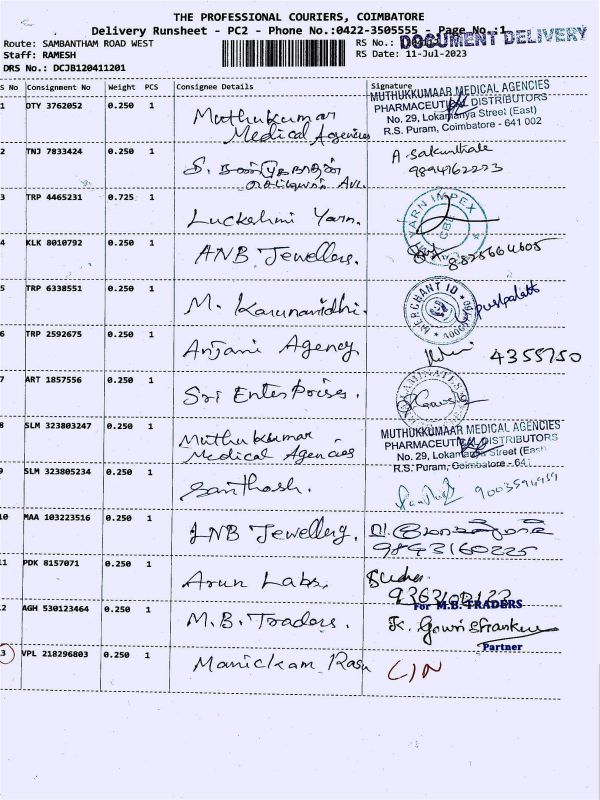 THE PROFESSIONAL COURIERS, COIMBATORE
Delivery Runsheet - PC2 - Phone No.:0422-3505555 - Page No.:1
Route: SAMBANTHAM ROAD WEST
RS No.:
DOCUMENT DELIVERY
Staff: RAMESH
RS Date: 11-Jul-2023
DRS No.: DCJB120411201
S No Consignment No Weight PCS Consignee Details Signature
1 DTY 3762052 0.250 1 Muthukumar
Medical Agencies
MUTHUKKUMAAR MEDICAL AGENCIES
PHARMACEUTICAL DISTRIBUTORS
No. 29, Lokamanya Street (East)
R.S. Puram, Coimbatore - 641 002
2 TNJ 7833424 0.250 1
A. Sakunthale
9894762223
3 TRP 4465231 0.725 1 Luckshmi Yarn.
YARN IMPEX
CBE
4 KLK 8010792 0.250 1 ANB Jewellers.
8825664605
5 TRP 6338551 0.250 1 M. Karunanidhi.
MERCHANT ID
Pushpalatha
6 TRP 2592675 0.250 1 Anjani Agency
4355750
7 ART 1857556 0.250 1 Sri Enterprises.
8 SLM 323803247 0.250 1 Muthukumar
Medical Agencies
MUTHUKKUMAAR MEDICAL AGENCIES
PHARMACEUTICAL DISTRIBUTORS
No. 29, Lokamanya Street (East)
R.S. Puram, Coimbatore - 641
9 SLM 323805234 0.250 1 Santhosh.
9003594959
10 MAA 103223516 0.250 1 ANB Jewellery.
9843160225
11 PDK 8157071 0.250 1 Arun Labs.
Sudha.
12 AGH 530123464 0.250 1 M.B. Traders.
For M.B. TRADERS
K. Gowrishankar
Partner
13 VPL 218296803 0.250 1 Manickam Rasu
C/N